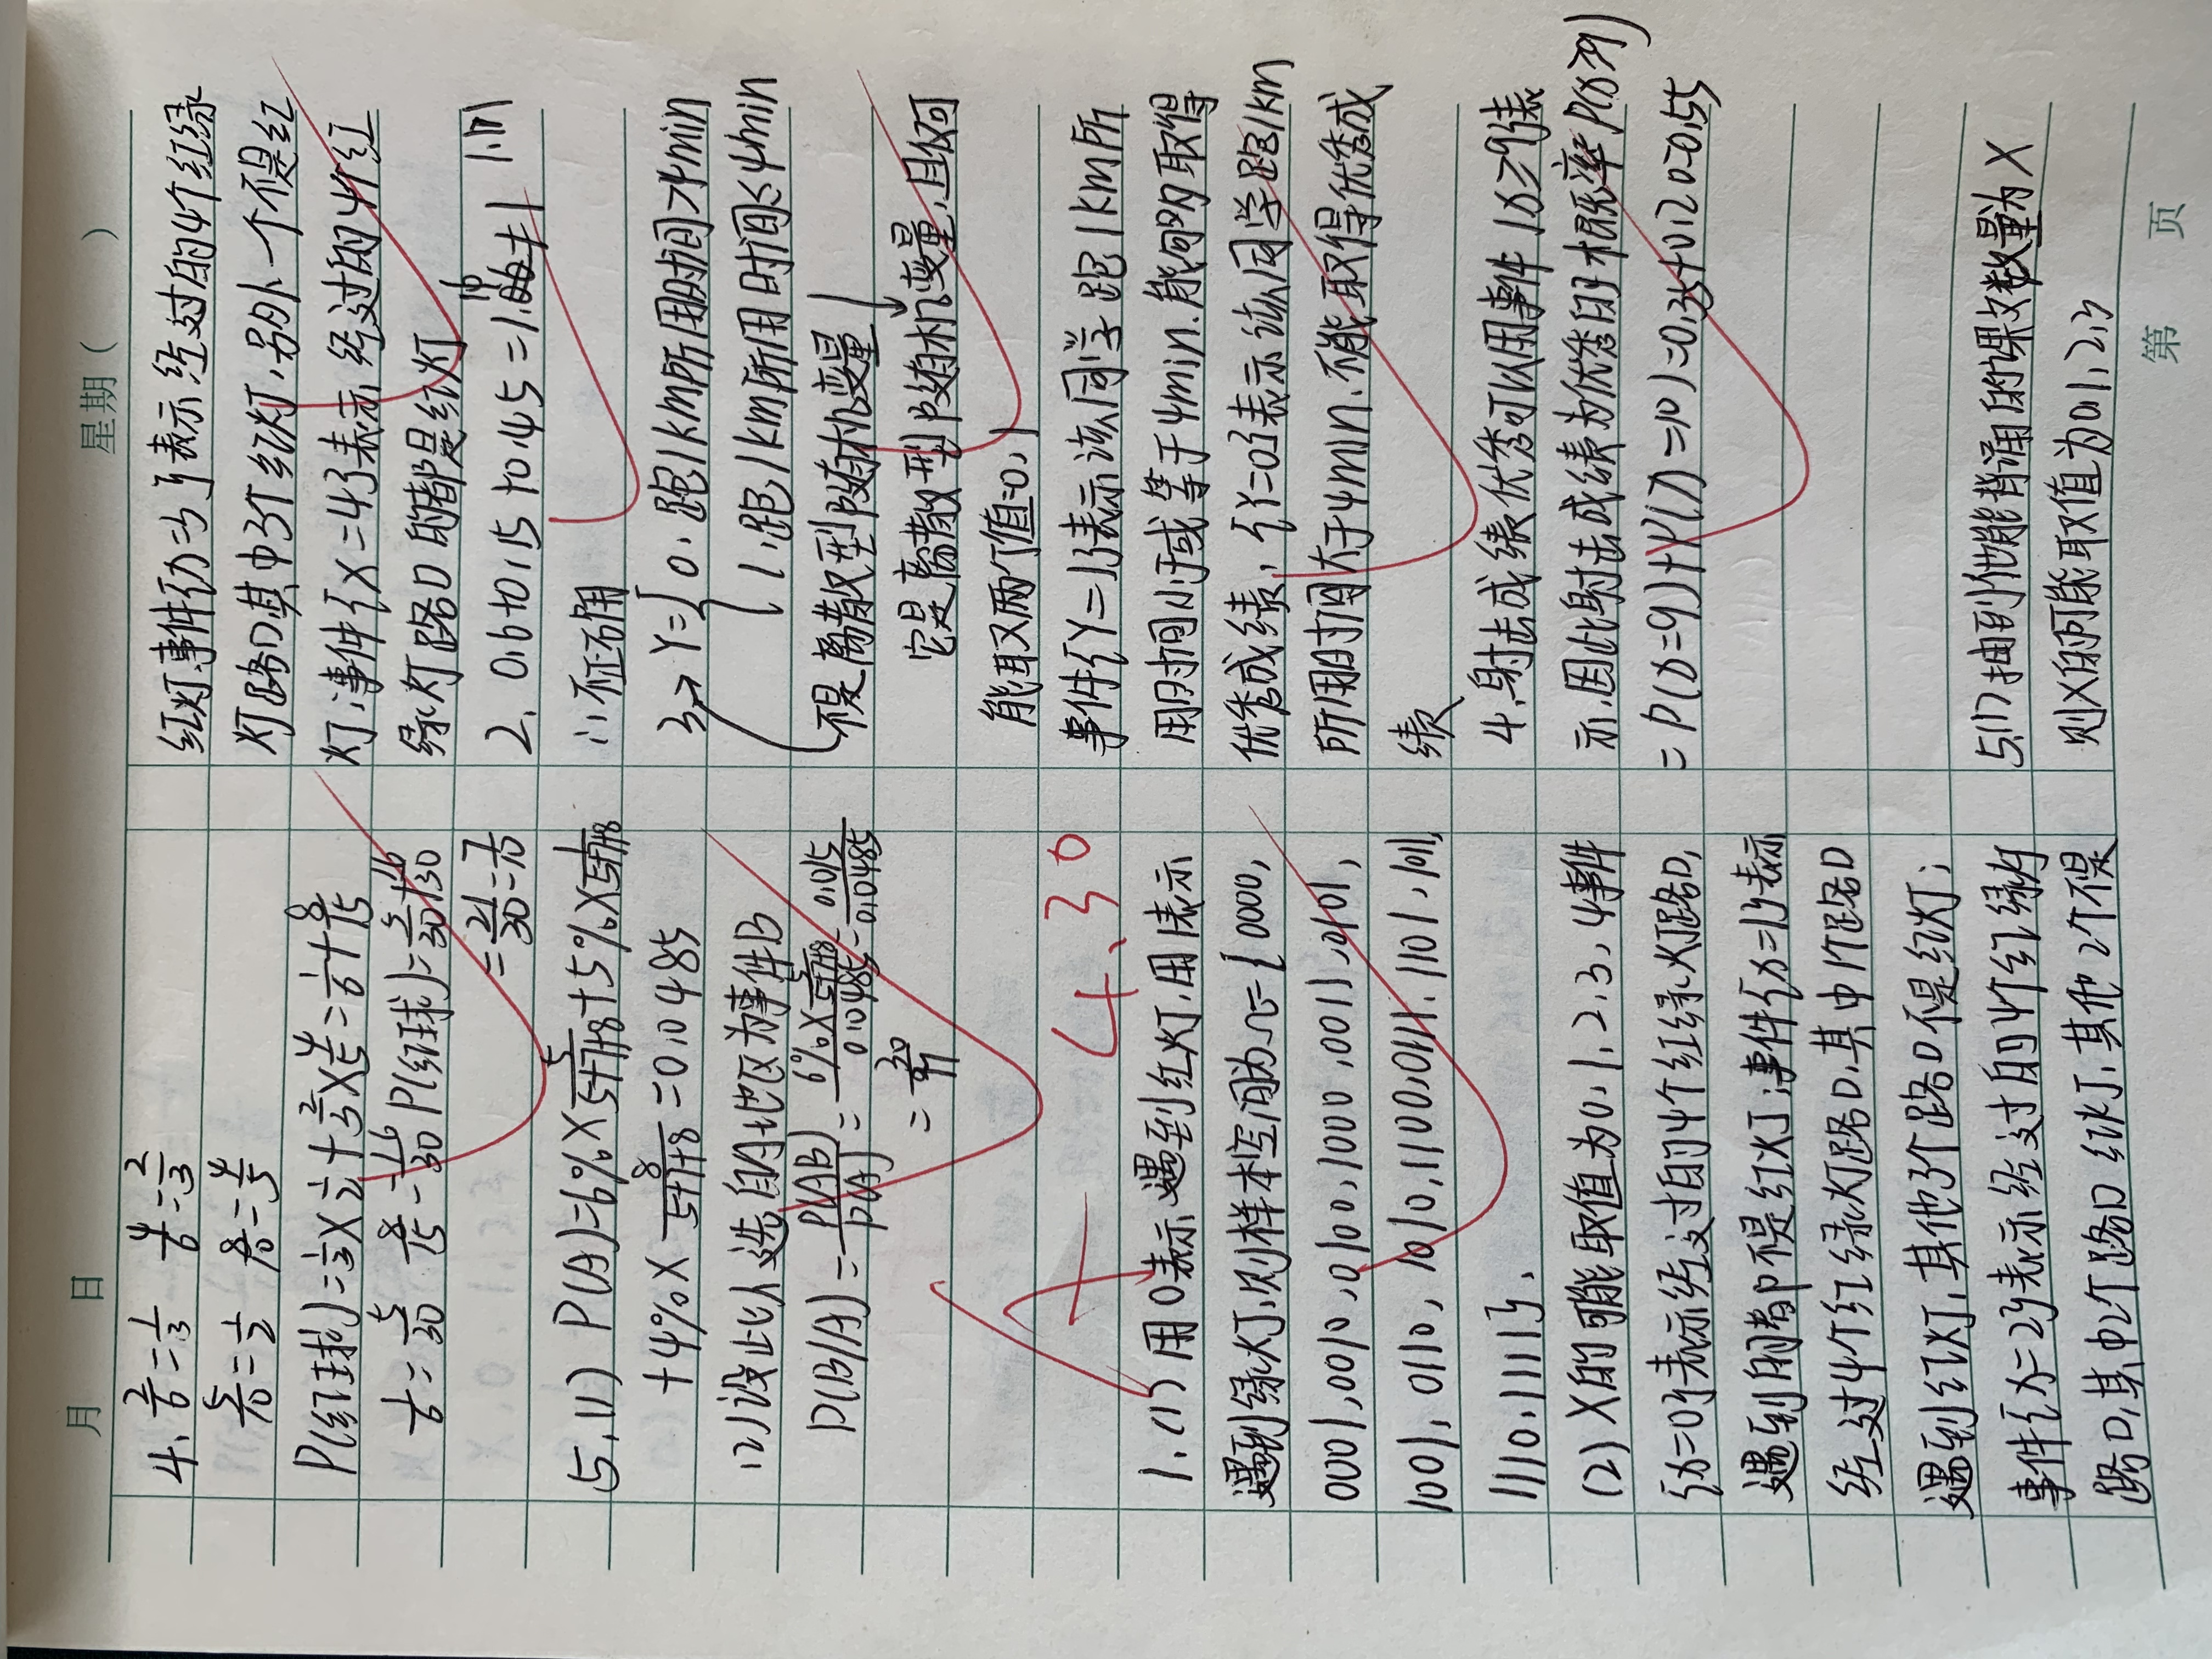 月 日
星期( )
4. 2/6=1/3 4/6=2/3
5/10=1/2 8/10=4/5
P(红球)=1/3×1/2+2/3×4/5=1/6+8/15
1/6=5/30 8/15=16/30 P(红球)=5/30+16/30
=21/30=7/10
5.(1) P(A)=6%×5/(5+7+8)+5%×7/(5+7+8)
+4%×8/(5+7+8)=0.0485
(2)设此人选自A地区为事件B
P(B|A)=P(AB)/P(A)=6%×5/(5+7+8)/0.0485=0.015/0.0485
=30/97
A+ 4.30
1.(1)用0表示遇到红灯.用1表示
遇到绿灯.则样本空间为Ω={0000,
0001,0010,0100,1000,0011,0101,
1001,0110,1010,1100,0111.1101.1011,
1110.1111}.
(2)X的可能取值为0.1.2.3.4事件
{X=0}表示经过的4个红绿灯路口,
遇到的都不是红灯;事件{X=1}表示
经过4个红绿灯路口.其中1个路口
遇到红灯.其他3个路口不是红灯;
事件{X=2}表示经过的4个红绿灯
路口.其中2个路口红灯.其他2个不是
红灯.事件{X=3}表示经过的4个红绿
灯路口其中3个红灯.另外一个不是红
灯;事件{X=4}表示经过的4个红
绿灯路口的都是红灯
2. 0.6+0.15+0.45=1.10≠1
∴不正确
3→Y={0.跑1km所用时间>4min
1.跑1km所用时间≤4min
不是离散型随机变量
它是离散型随机变量,且仅可
能取两个值0,1
事件{Y=1}表示该同学跑1km所
用时间小于或等于4min.能够取得
优秀成绩,{Y=0}表示该同学跑1km
所用时间大于4min.不能取得优秀成
绩
4.射击成绩优秀可以用事件{X≥9}表
示.因此射击成绩为优秀的概率P(X≥9)
=P(X=9)+P(X=10)=0.35+0.20=0.55
5.(1)抽到他能背诵的课文数量为X
则X的可能取值为0,1,2,3
第 页